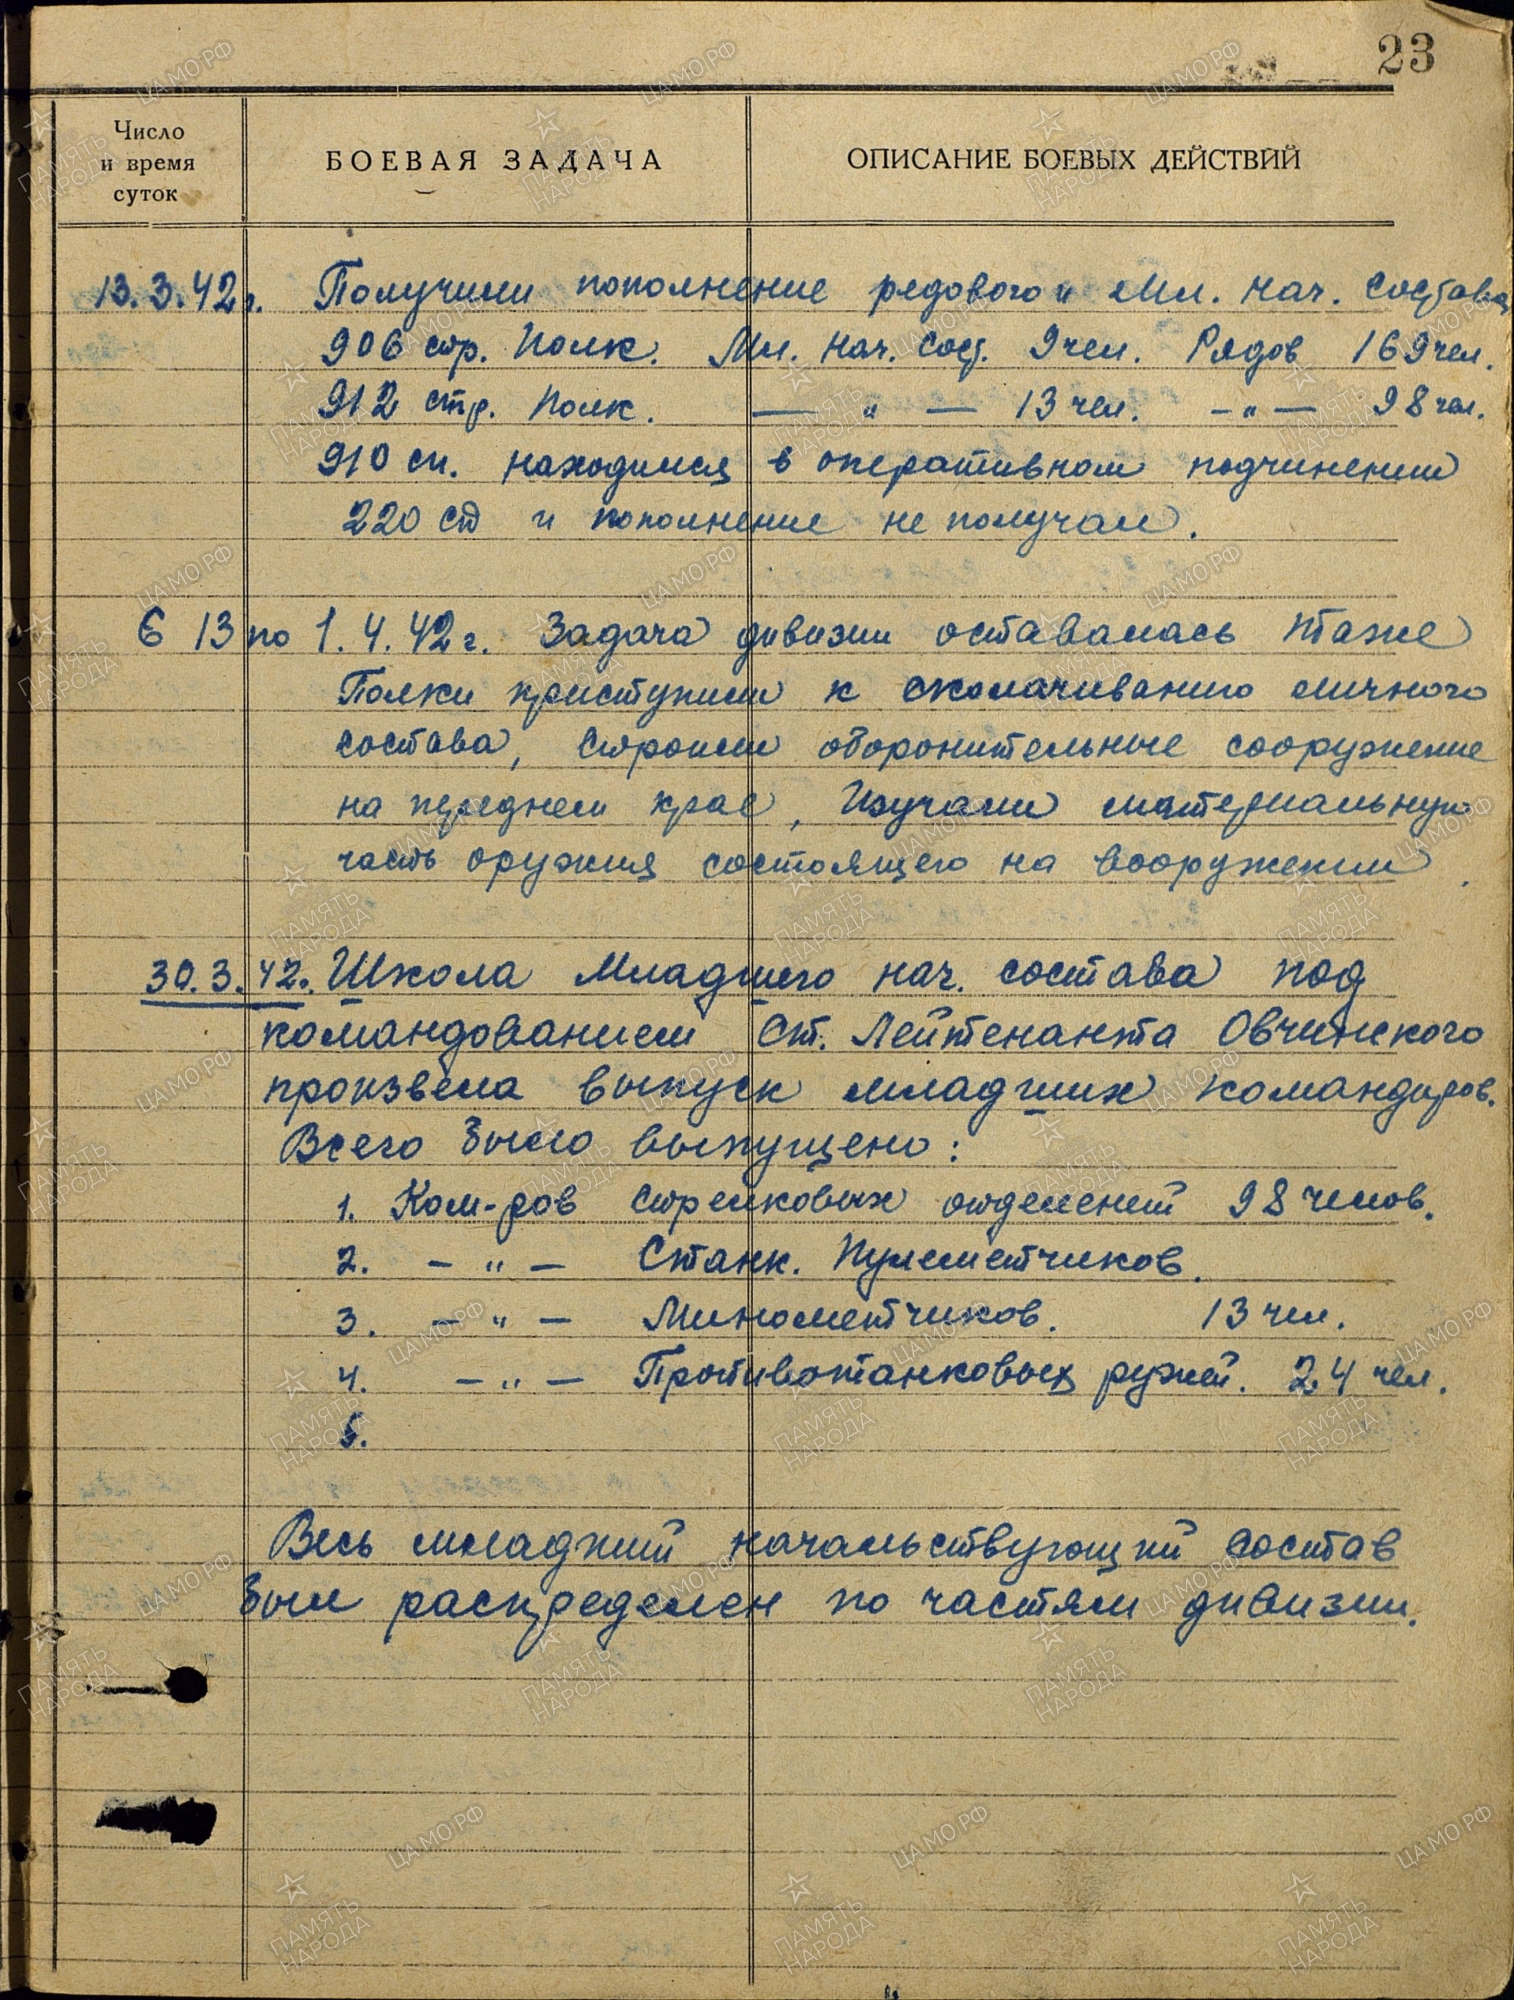 23
Число
и время
суток
БОЕВАЯ ЗАДАЧА
ОПИСАНИЕ БОЕВЫХ ДЕЙСТВИЙ
13.3.42г. Получили пополнение рядового и Мл. Нач. Состава
906 стр. Полк. Мл. Нач. Сост. 9 чел. Рядов 169 чел.
912 стр. Полк. — „ — 13 чел. — „ — 98 чел.
910 сп. находился в оперативном подчинении
220 сд и пополнение не получал.
С 13 по 1.4.42г. Задача дивизии оставалась таже
Полки приступили к сколачиванию личного
состава, строили оборонительные сооружение
на переднем крае, Изучали материальную
часть оружия состоящего на вооружении.
30.3.42. Школа Младшего нач. состава под
командованием Ст. Лейтенанта Овчинского
произвела выпуск младших командиров.
Всего было выпущено:
1. Ком-ров стрелковых отделений 98 челов.
2. — „ — Станк. Пулеметчиков.
3. — „ — Минометчиков. 13 чел.
4. — „ — Противотанковых ружей. 24 чел.
5.
Весь младший начальствующий состав
был распределен по частям дивизии.